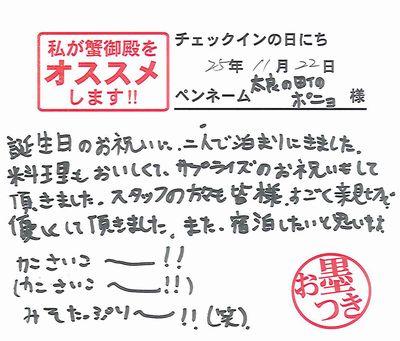 私が蟹御殿を
オススメ
します!!
チェックインの日にち
25年 11月 22日
ペンネーム 太良の町のポニョ 様
誕生日のお祝いに、二人で泊まりにきました。
料理もおいしくて、サプライズのお祝いもして
頂きました。スタッフの方も皆様、すごく親切で
優しくして頂きました。また、宿泊したいと思います
かにさいこ〜!!
(かにさいこ〜!!)
みそたっぷり〜!!(笑)
お墨
つき